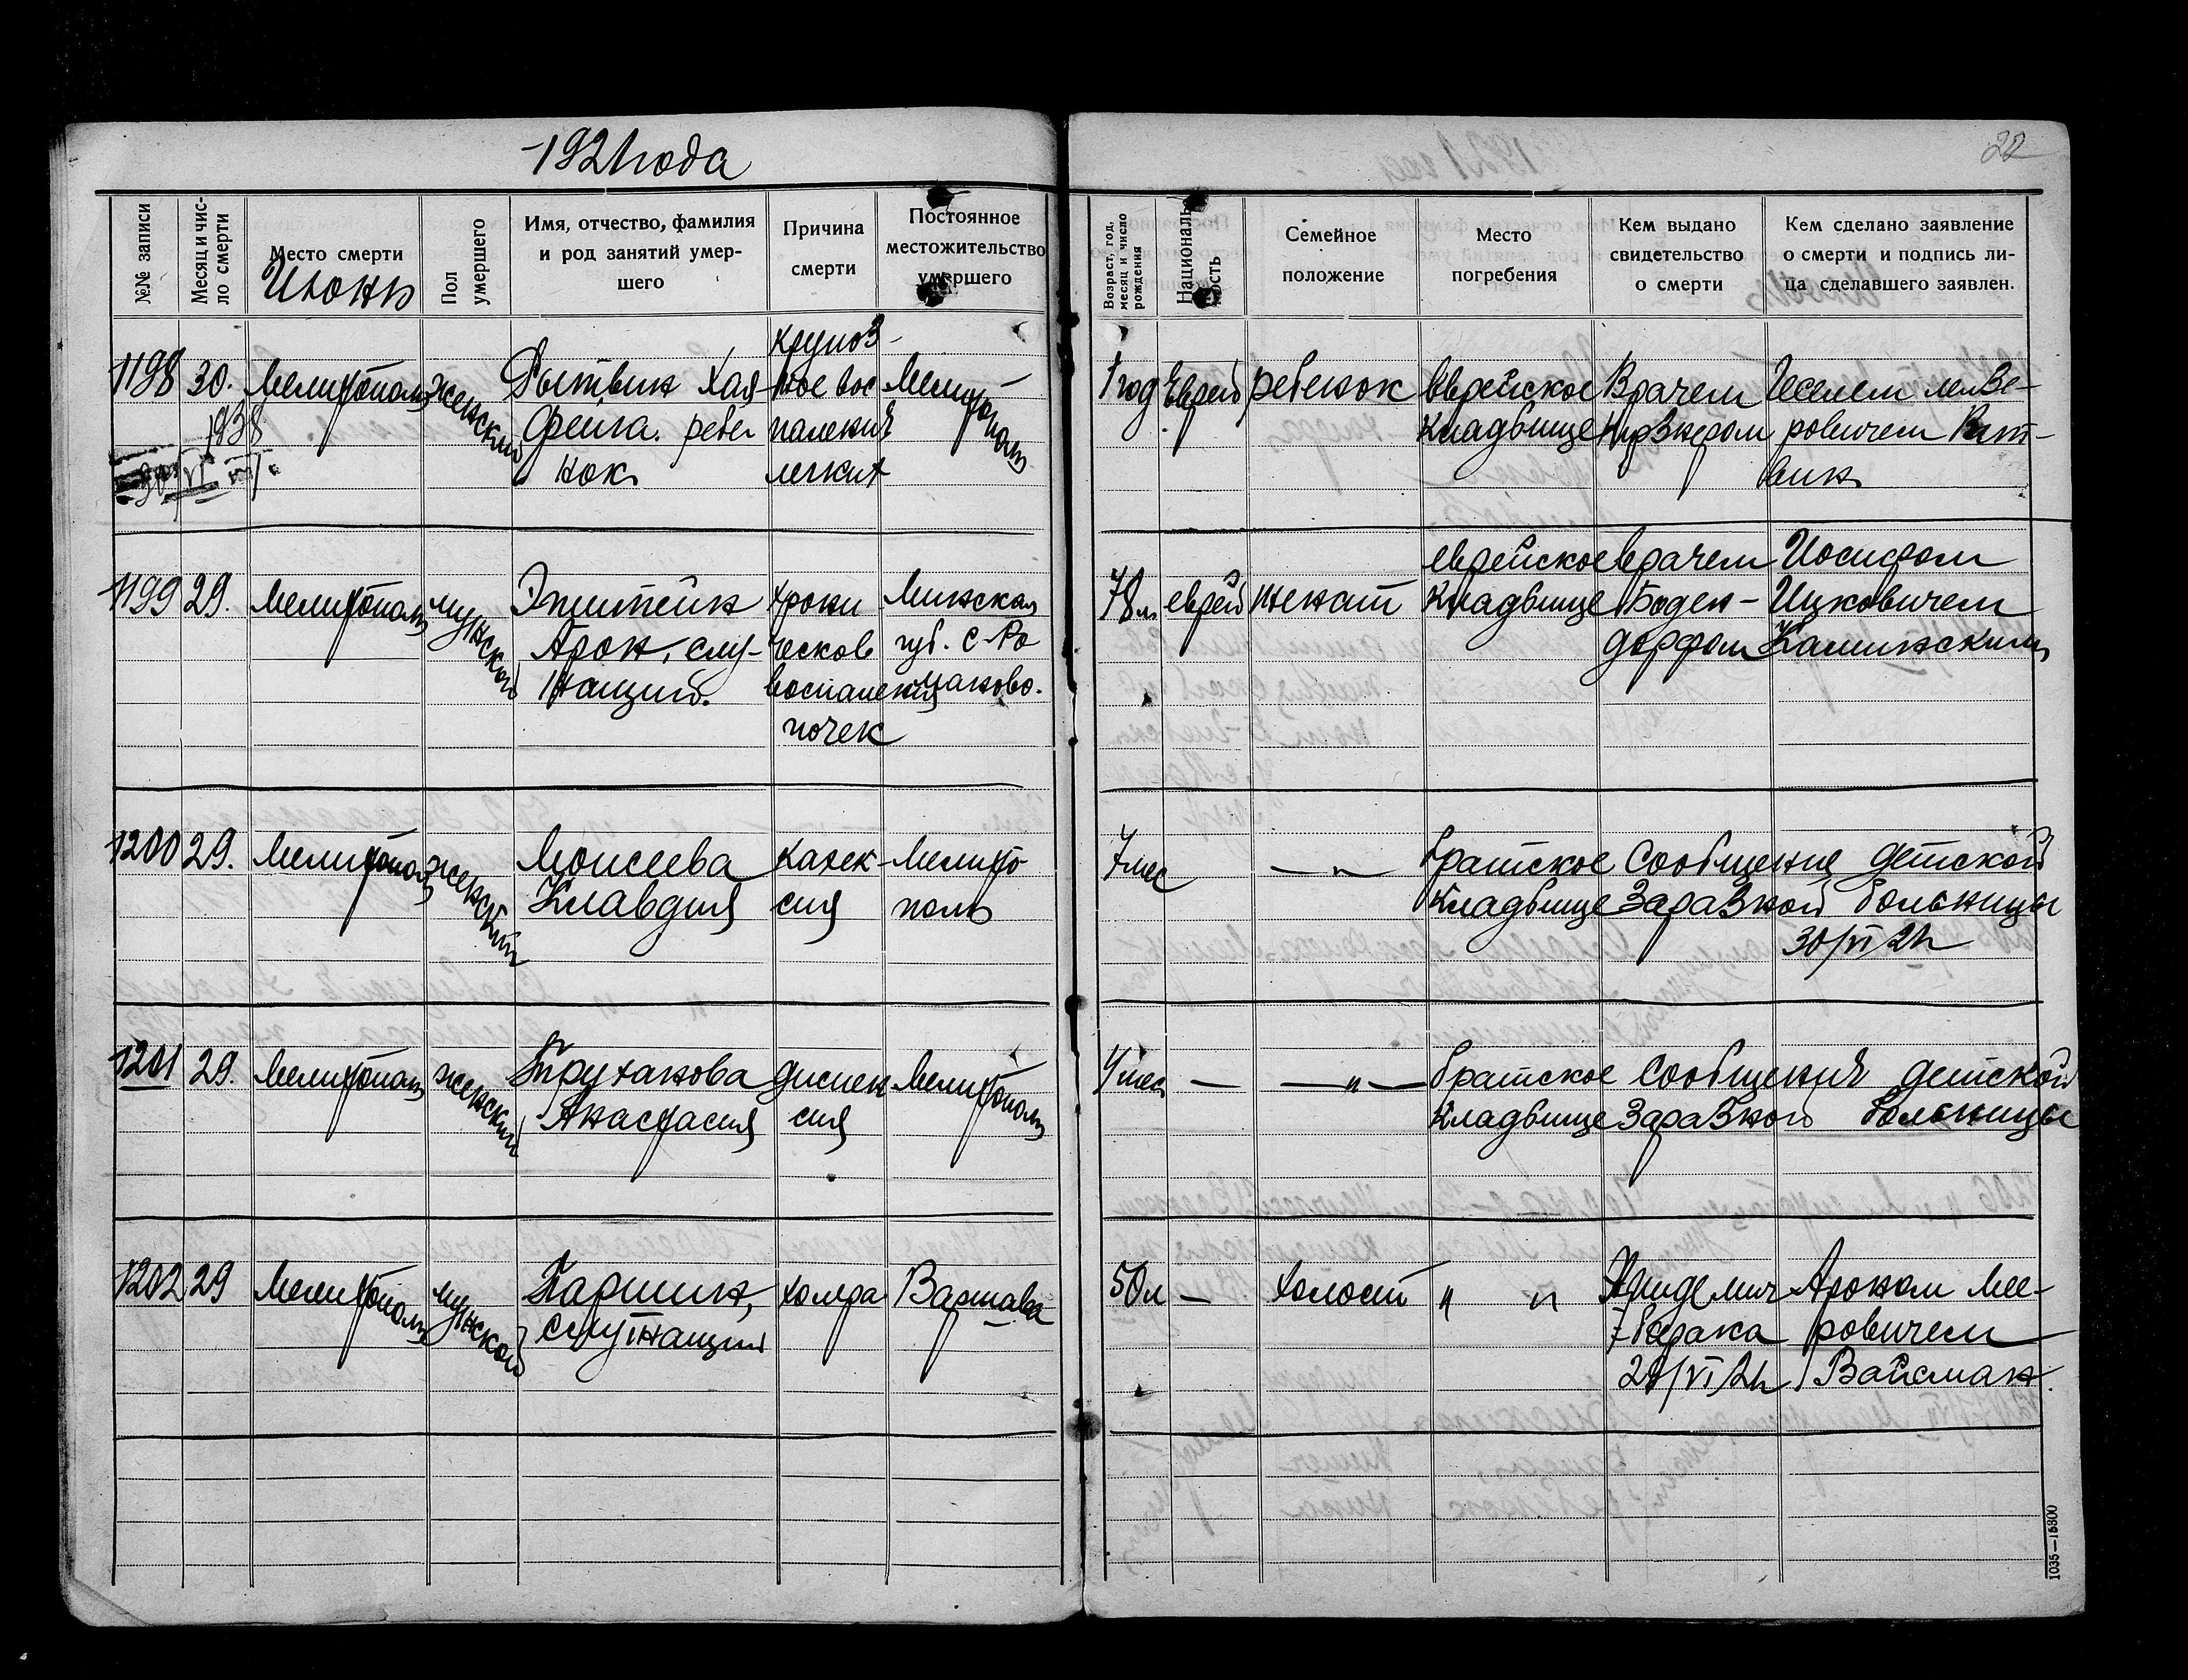 1921 года
22
№№ записи
Месяц и число смерти
Место смерти
Июнь
Пол умершего
Имя, отчество, фамилия
и род занятий умер-
шего
Причина
смерти
Постоянное
местожительство
умершего
Возраст, год,
месяц и число
рождения
Националь-
ность
Семейное
положение
Место
погребения
Кем выдано
свидетельство
о смерти
Кем сделано заявление
о смерти и подпись ли-
ца сделавшего заявлен.
1198
30.
1938
Мелитополь
женский
Хая
Фейга. ребе
нок
крупоз-
ное вос
паление
легких
Мелитополь
1 год
Еврей
ребенок
Еврейское
кладбище
Врачем
1199
29.
Мелитополь
мужской
Эпштейн
Арон, слу-
жащий.
хрони
ческое
воспаление
почек
Минская
губ. с.
78 л
еврей
женат
еврейское
кладбище
врачем
Боден-
дорфом
Иосифом
Ицковичем
Каминским
1200
29.
Мелитополь
женский
Моисеева
Клавдия
кахек-
сия
Мелито
поль
7 мес
— „ —
братское
кладбище
Сообщение детской
заразной больницы
30/VI 21 г
1201
29.
Мелитополь
женский
Труханова
Анастасия
диспеп
сия
Мелитополь
4 мес
—
— „ —
братское
кладбище
Сообщение детской
заразной больницы
1202
29
Мелитополь
мужской
Паршин,
служащий
холера
Варшава
50 л
—
холост
„ „
Эпидемич
барака
29/VI 21 г
Ароном Мее-
ровичем
Вайсман.
1035—15300